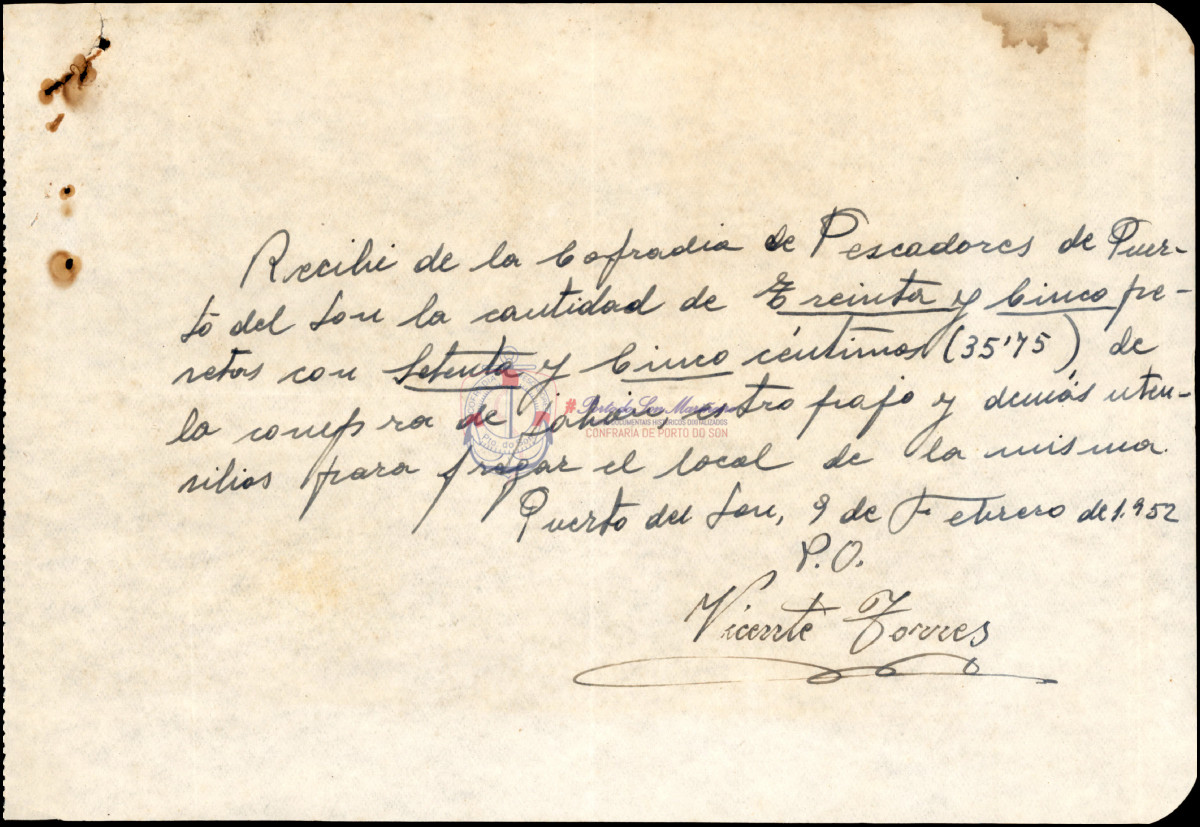 Recibi de la Cofradia de Pescadores de Puer-
to del Son la cantidad de Treinta y Cinco pe-
setas con Setenta y Cinco céntimos (35'75) de
la compra de jabón, estropajo y demás uten-
silios para fregar el local de la misma.
Puerto del Son, 9 de Febrero de 1.952
P.O.
Vicente Torres
# Porto do Son Mariñeiro
DOCUMENTAIS HISTÓRICOS DIGITALIZADOS
CONFRARÍA DE PORTO DO SON
Pto. do Son